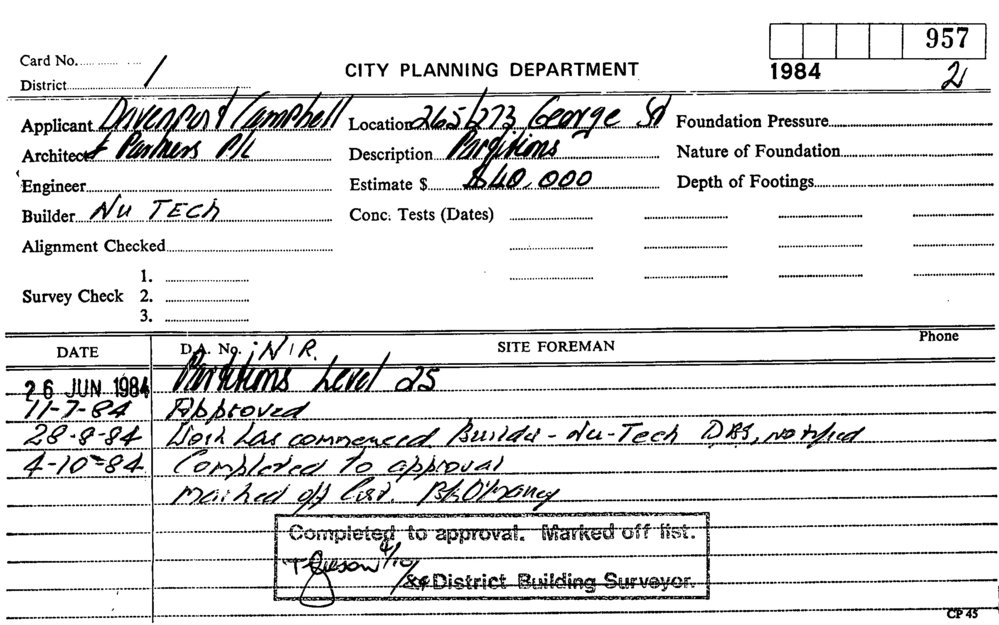 957
Card No.
CITY PLANNING DEPARTMENT
1984
2
District 1
Applicant Davenport Campbell
Location 265/273 George St
Foundation Pressure
Architect & Partners P/L
Description Partitions
Nature of Foundation
Engineer
Estimate $ $40,000
Depth of Footings
Builder Nu Tech
Conc. Tests (Dates)
Alignment Checked
1.
Survey Check 2.
3.
DATE
D.A. No. N/R.
SITE FOREMAN
Phone
26 JUN 1984 Partitions Level 25
11-7-84 Approved
28-8-84 Work has commenced Builder - Nu-Tech DBS, notified
4-10-84 Completed to approval
Marked off List.
Completed to approval. Marked off list.
4/10
/84 District Building Surveyor.
CP 45